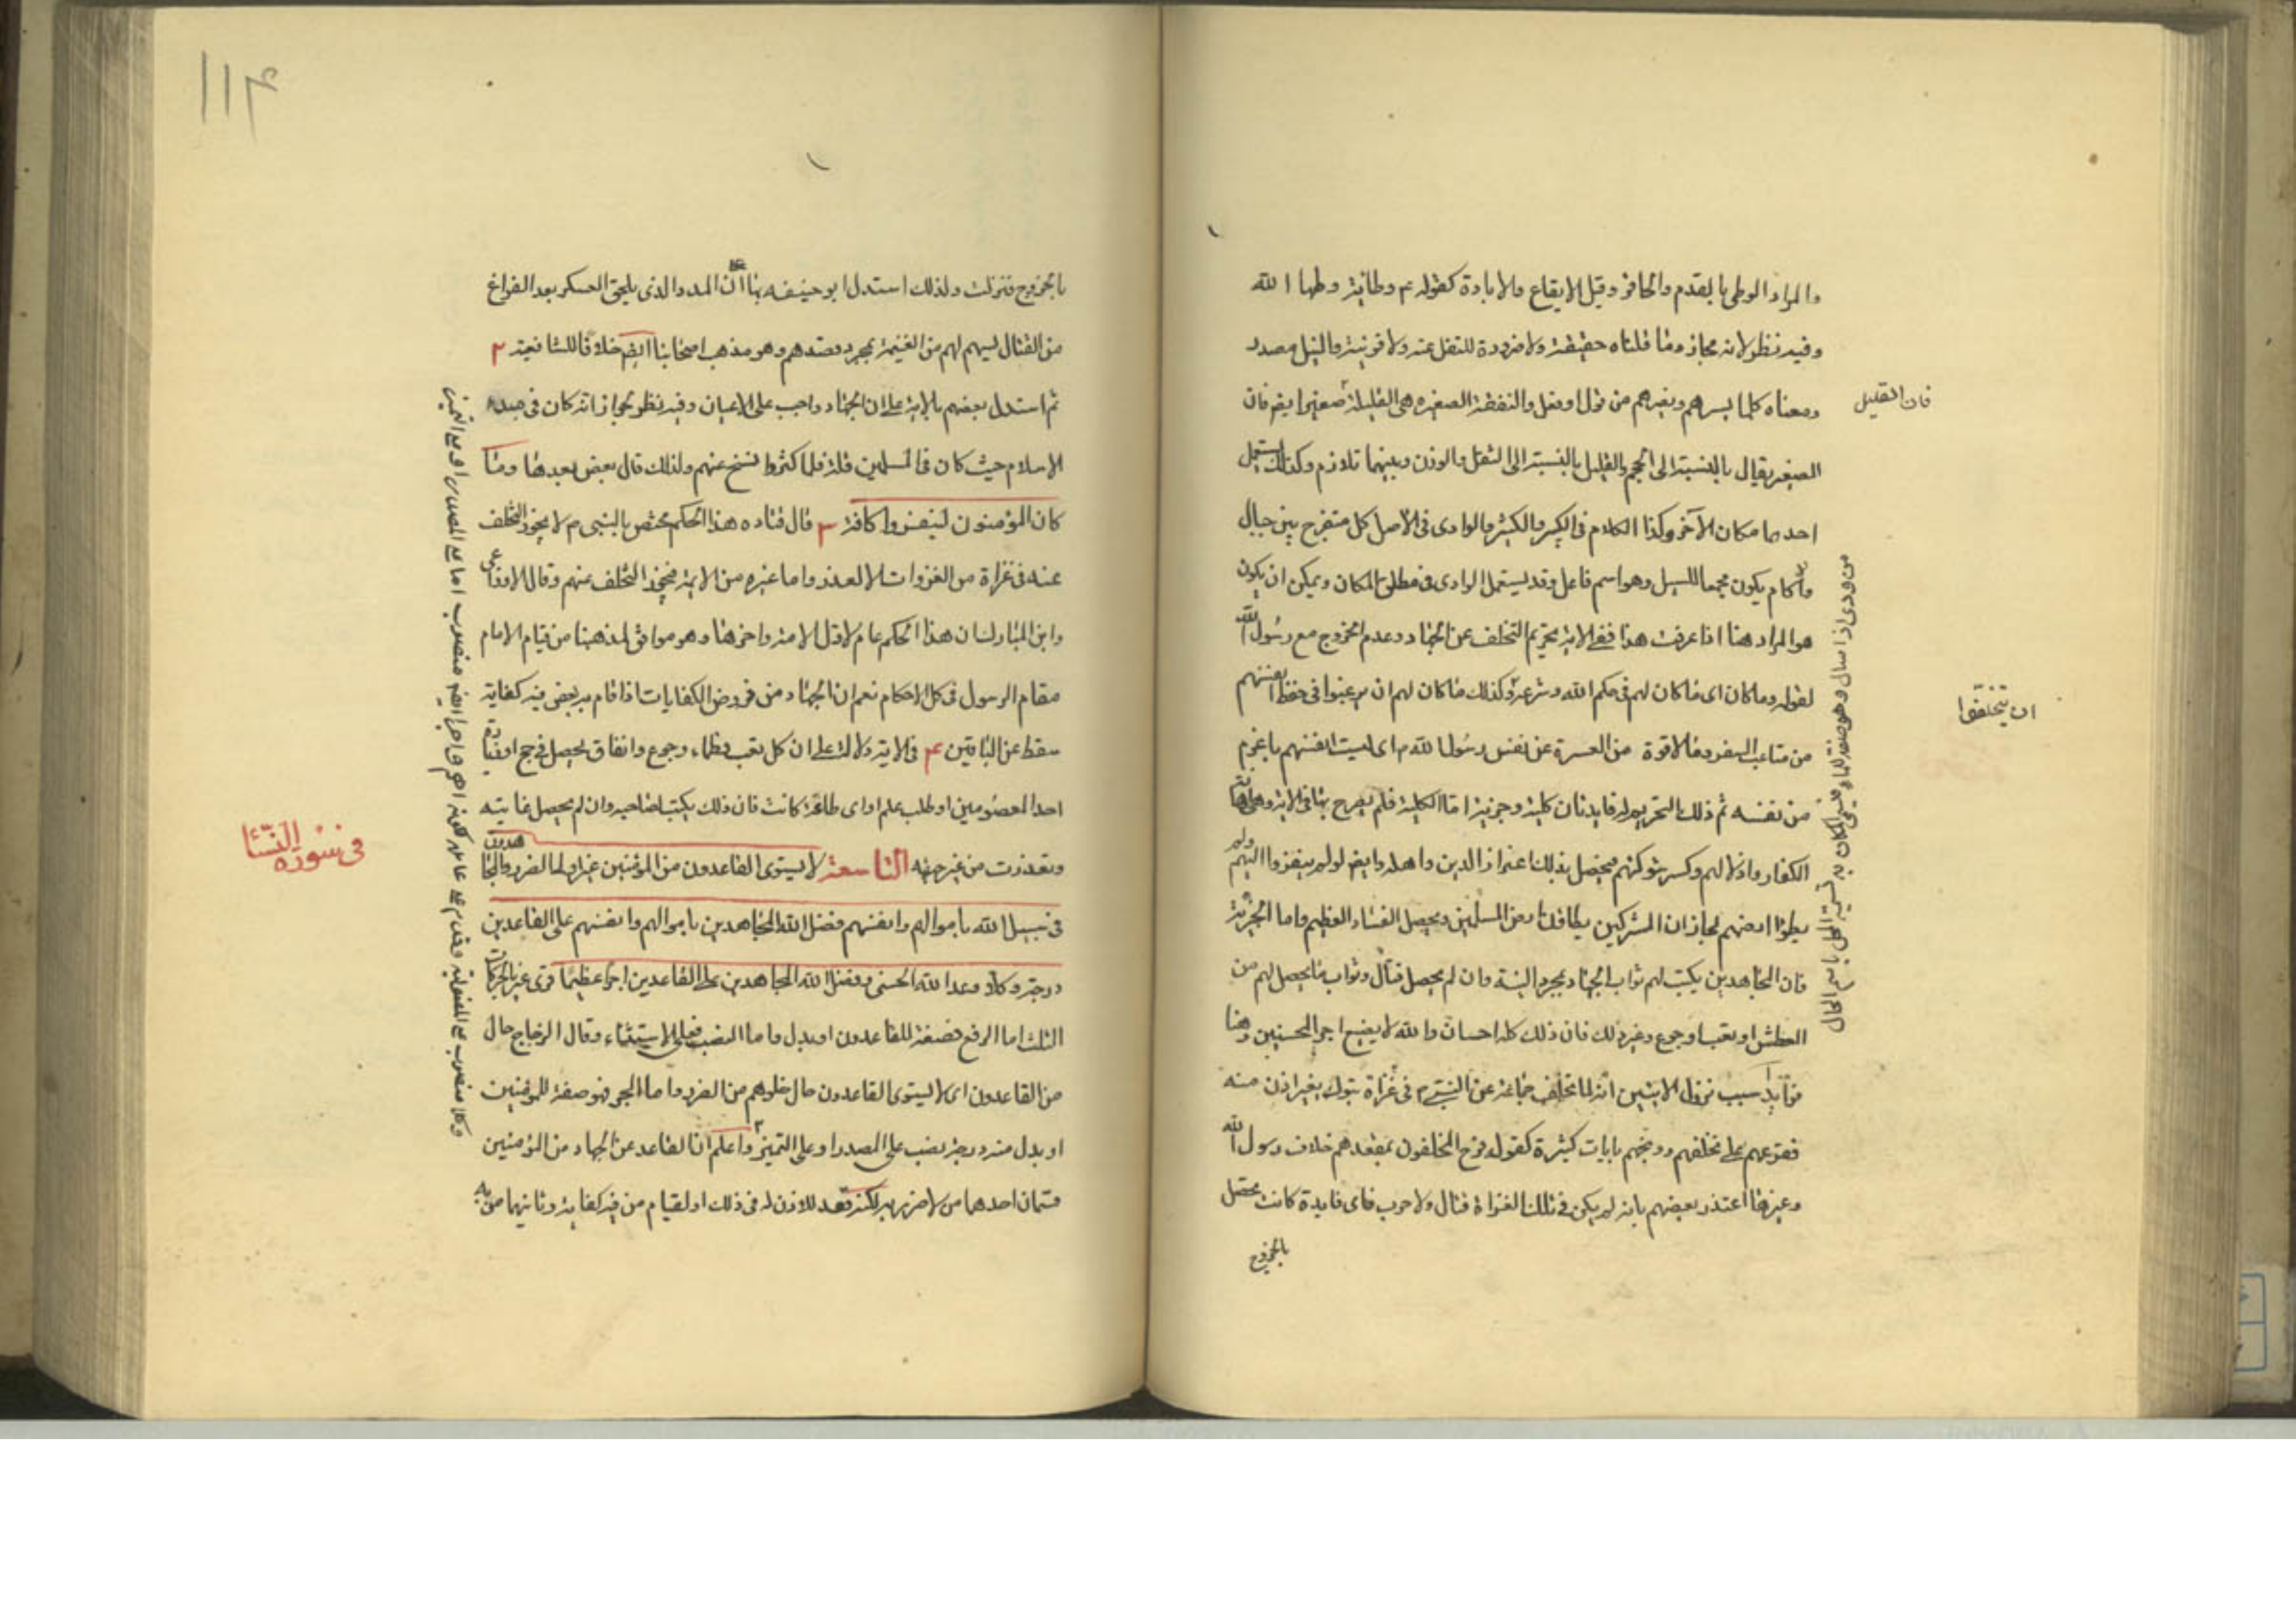 والمراد الوطى بالقدم والحافر وقيل الايقاع والابادة كقوله ع وطاية وطها الله
وفيه نظر لانه مجاز وما قلناه حقيقة ولا ضرورة للنقل عنه ولا قرينة والنيل مصدر
ومعناه كلما يسرهم ويضرهم من قول او فعل والنفقة الصغيره هى القليلة صغيرا يض فان
فان القليل
الصغير يقال بالنسبة الى الحجم والقليل بالنسبة الى الثقل والوزن وبينهما تلازم وكذلك يستعمل
احدهما مكان الآخر وكذا الكلام فى الكبير والكثير والوادى فى الاصل كل منفرج بين جبال
وآكام يكون مجمعا للسيل وهو اسم فاعل وقد يستعمل الوادى فى مطلق المكان ويمكن ان يكون
من ودى اذا سال وهو صفة للماء فسمى المكان به تسمية المحل باسم الحال
هو المراد هنا اذا عرفت هذا ففى الاية تحريم التخلف عن الجهاد وعدم الخروج مع رسول الله
لقوله وما كان اى ما كان لهم فى حكم الله وشرعه وكذلك ما كان لهم ان يرغبوا فى حفظ انفسهم
ان يتخلفوا
من متاعب السفر وملاقوة من العسرة عن نفس رسول الله ص اى ليست انفسهم باعزم
من نفسه ثم ذلك التحريم له فايدتان كلية وجزئية اما الكلية فلم يصرح بها فى الاية وهى اهانة
الكفار واذلالهم وكسر شوكتهم فيحصل بذلك اعزاز الدين واهله وايض لو لم ينفروا اليهم ولم
يطؤا ارضهم لجاز ان المشركين يطاؤن ارض المسلمين ويحصل الفساد العظيم واما الجزئية
فان المجاهدين يكتب لهم ثواب الجهاد بمجرد النية وان لم يحصل قتال وثواب ما يحصل لهم من
العطش او تعب او جوع وغير ذلك فان ذلك كله احسان والله لا يضيع اجر المحسنين وهنا
فوايد ا سبب نزول الايتين انه لما تخلف جماعة عن النبى ص فى غزاة تبوك بغير اذن منه
فقرعهم على تخلفهم ووبخهم بايات كثيرة كقوله فرح المخلفون بمقعدهم خلاف رسول الله
وغيرها اعتذر بعضهم بانه لم يكن فى تلك الغزاة قتال ولا حرب فاى فايدة كانت تحصل
بالخروج
۱۱۴
بالخروج فنزلت ولذلك استدل ابو حنيفه بها ان المدد الذى يلحق العسكر بعد الفراغ
من القتال ليسهم لهم من الغنيمة بمجرد قصدهم وهو مذهب اصحابنا ايض خلافا للشافعية ۲
ثم استدل بعضهم بالاية على ان الجهاد واجب على الاعيان وفيه نظر لجواز انه كان فى مبدء
الاسلام حيث كان فى المسلمين قلة فلما كثروا نسخ عنهم ولذلك قال بعض بعدها وما
كان المؤمنون لينفروا كافة ۳ قال قتاده هذا الحكم مختص بالنبى ص لا يجوز التخلف
عنه فى غزاة من الغزوات الا لعذر واما غيره من الايمة فيجوز التخلف عنهم وقال الاوزاعى
وابن المبارك ان هذا الحكم عام لاول الامة واخرها وهو موافق لمذهبنا من قيام الامام
مقام الرسول فى كل الاحكام نعم ان الجهاد من فروض الكفايات اذا قام به بعض فيه كفاية
سقط عن الباقين ۴ فى الاية دلالة على ان كل تعب وظماء وجوع وانفاق يحصل فى حج او زيارة
احد المعصومين او طلب علم او اى طاعة كانت فان ذلك يكتب لصاحبه وان لم يحصل غايته
وتعذرت من غير جهته التاسعة لا يستوى القاعدون من المؤمنين غير اولى الضرر والمجاهدون
فى سورة النسا
فى سبيل الله باموالهم وانفسهم فضل الله المجاهدين باموالهم وانفسهم على القاعدين
درجة وكلا وعد الله الحسنى وفضل الله المجاهدين على القاعدين اجرا عظيما قرى غير بالحركات
الثلث اما الرفع فصفة للقاعدون او بدل واما النصب فعلى الاستثناء وقال الزجاج حال
من القاعدون اى لا يستوى القاعدون حال خلوهم من الضرر واما الجر فهو صفة للمؤمنين
او بدل منه ودرجة نصب على المصدر او على التميز واعلم ان القاعد عن الجهاد من المؤمنين
قسمان احدهما من لا ضرر به لكنه قعد للاذن له فى ذلك او لقيام من فيه كفاية وثانيهما من به